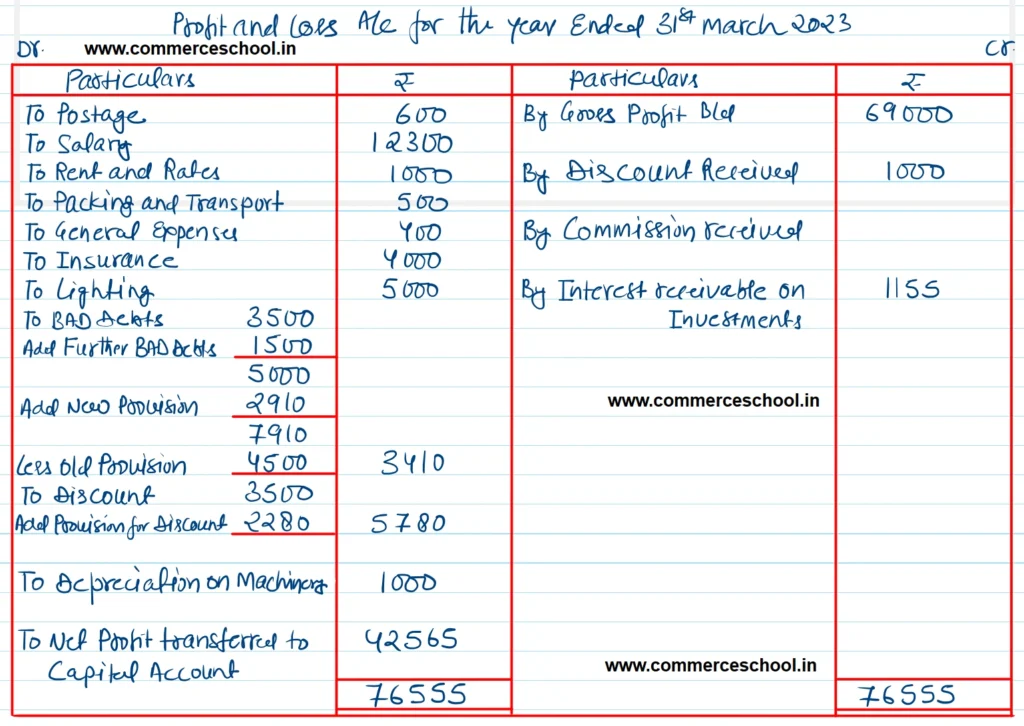 Profit and Loss A/c for the year Ended 31st March 2023
Dr. www.commerceschool.in Cr.
Particulars ₹ Particulars ₹
To Postage 600 By Gross Profit B/d 69000
To Salary 12300
To Rent and Rates 1000 By Discount Received 1000
To Packing and Transport 500
To General Expenses 400 By Commission received
To Insurance 4000
To Lighting 5000 By Interest receivable on 1155
To BAD Debts 3500 Investments
Add Further BAD Debts 1500
5000
Add New Provision 2910 www.commerceschool.in
7910
Less Old Provision 4500 3410
To Discount 3500
Add Provision for Discount 2280 5780
To Depreciation on Machinery 1000
To Net Profit transferred to 42565
Capital Account www.commerceschool.in
76555 76555